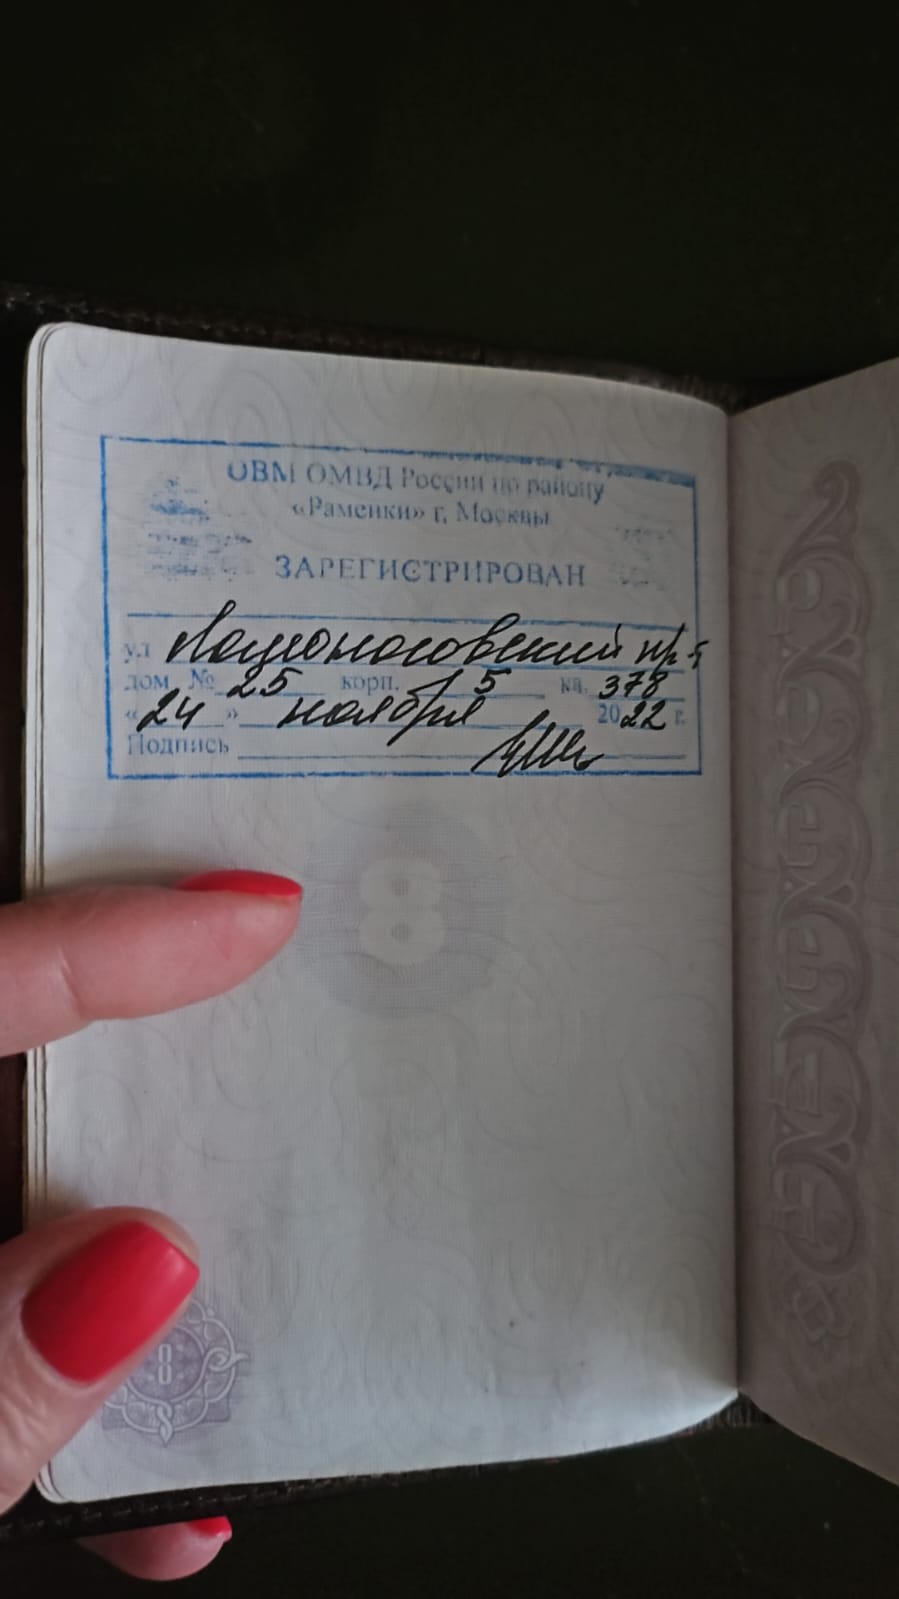 ОВМ ОМВД России по району
«Раменки» г. Москвы
ЗАРЕГИСТРИРОВАН
ул Ломоносовский пр-т
дом № 25 корп. 5 кв. 378
«24» ноября 2022 г.
Подпись
8
8